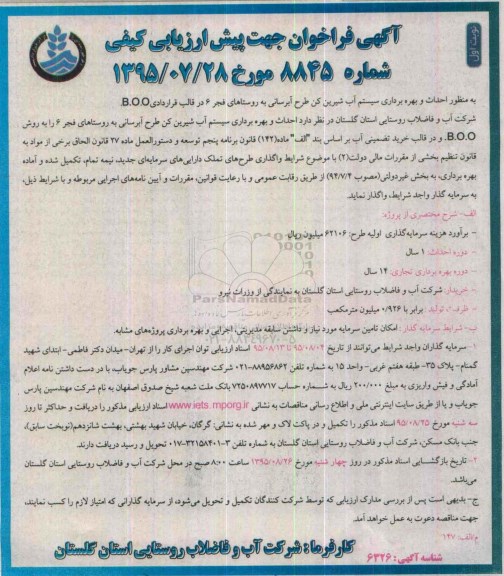 نوبت اول
آگهی فراخوان جهت پیش ارزیابی کیفی
شماره ۸۸۴۵ مورخ ۱۳۹۵/۰۷/۲۸
به منظور احداث و بهره برداری سیستم آب شیرین کن طرح آبرسانی به روستاهای فجر ۶ در قالب قراردادی B.O.O.
شرکت آب و فاضلاب روستایی استان گلستان در نظر دارد احداث و بهره برداری سیستم آب شیرین کن طرح آبرسانی به روستاهای فجر ۶ را به روش
B.O.O. و در قالب خرید تضمینی آب بر اساس بند "الف" ماده(۱۴۲) قانون برنامه پنجم توسعه و دستورالعمل ماده ۲۷ قانون الحاق برخی از مواد به
قانون تنظیم بخشی از مقررات مالی دولت(۲) با موضوع شرایط واگذاری طرح‌های تملک دارایی‌های سرمایه‌ای جدید، نیمه تمام، تکمیل شده و آماده
بهره برداری، به بخش غیردولتی(مصوب ۹۴/۷/۴) از طریق رقابت عمومی و با رعایت قوانین، مقررات و آیین نامه‌های اجرایی مربوطه و با شرایط ذیل،
به سرمایه گذار واجد شرایط، واگذار نماید.
الف- شرح مختصری از پروژه:
- برآورد هزینه سرمایه‌گذاری اولیه طرح: ۶۲۱۰۶ میلیون ریال
- دوره احداث: ۱ سال
- دوره بهره برداری تجاری: ۱۴ سال
- خریدار: شرکت آب و فاضلاب روستایی استان گلستان به نمایندگی از وزرات نیرو
- ظرفیت تولید: برابر با ۰/۹۲۶ میلیون مترمکعب
ب- شرایط سرمایه گذار: امکان تامین سرمایه مورد نیاز و داشتن سابقه مدیریتی، اجرایی و بهره برداری پروژه‌های مشابه.
۱- سرمایه گذاران واجد شرایط می‌توانند از تاریخ ۹۵/۰۸/۰۴ تا ۹۵/۰۸/۱۳ اسناد ارزیابی توان اجرای کار را از تهران- میدان دکتر فاطمی- ابتدای شهید
گمنام- پلاک ۳۵- طبقه هفتم غربی- واحد ۱۵ به شماره تلفن ۸۸۹۵۶۸۶۲-۰۲۱ شرکت مهندسین مشاور پارس جویاب با در دست داشتن نامه اعلام
آمادگی و فیش واریزی به مبلغ ۲۰۰/۰۰۰ ریال به شـــماره حساب ۷۲۵۰۸۹۷۷۱۷ بانک ملت شعبه شیخ صدوق اصفهان به نام شرکت مهندسین پارس
جویاب و یا از طریق سایت اینترنتی ملی و اطلاع رسانی مناقصات به نشانی www.iets.mporg.ir اسناد ارزیابی مذکور را دریافت و حداکثر تا روز
سه شنبه مورخ ۹۵/۰۸/۲۵ اسناد مذکور را تکمیل و در پاکت لاک و مهر شده به نشانی: گرگان، خیابان شهید بهشتی، بهشت شانزدهم(نوبخت سابق)،
جنب بانک مسکن، شرکت آب و فاضلاب روستایی استان گلستان به شماره تلفن ۳-۳۲۱۵۸۴۰۱-۰۱۷ تحویل و رسید دریافت دارند.
۲- تاریخ بازگشـــایی اسناد مذکور در روز چهار شنبه مورخ ۱۳۹۵/۰۸/۲۶ ساعت ۸:۰۰ صبح در محل شرکت آب و فاضلاب روستایی استان گلستان
می‌باشد.
ج- بدیهی است پس از بررسی مدارک ارزیابی که توسط شرکت کنندگان تکمیل و تحویل می‌شود، از سرمایه گذارانی که امتیاز لازم را کسب نمایند،
جهت مناقصه دعوت به عمل خواهد آمد.
م الف: ۱۴۷
کارفرما: شرکت آب و فاضلاب روستایی استان گلستان
شناسه آگهی: ۶۳۲۶
ParsNamadData
۰۲۱-۸۸۳۴۹۶۷۰-۵